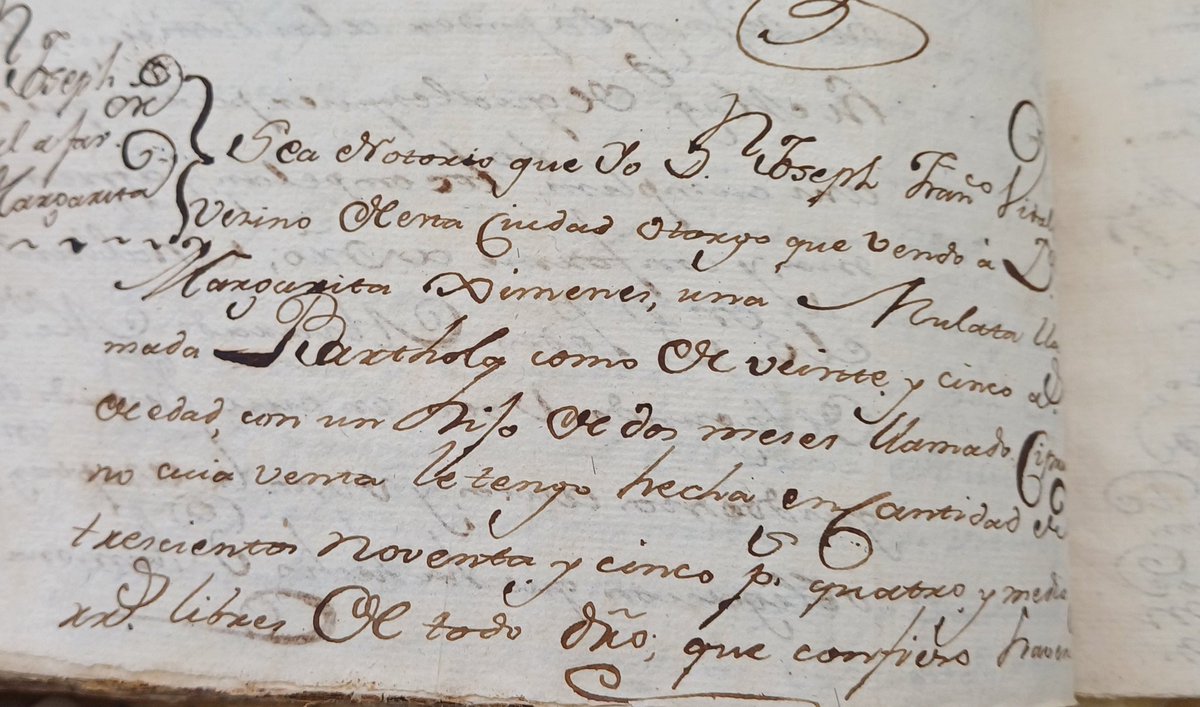 Joseph
de
al afar.
Margarita
Sea Notorio que Yo D.n Joseph Fran.co
Vezino de esta Ciudad otorgo que vendo â D.a
Margarita Ximenes, una Mulata lla
mada Barthola como de veinte, y cinco a.s
de edad, con un hijo de dos meses llamado Cipria
no cuia venta le tengo hecha en Cantidad de
trescientos noventa y cinco p.s quatro y medio
rr.s libres de todo dr̃o; que confieso haver